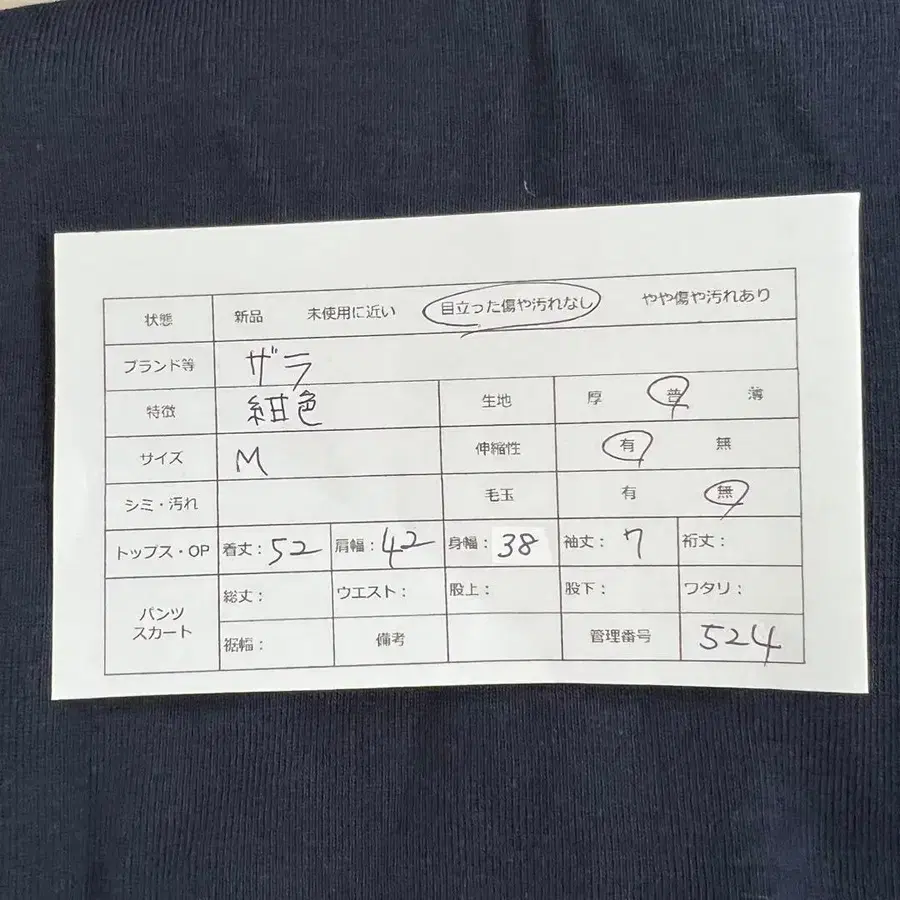 状態 新品 未使用に近い 目立った傷や汚れなし やや傷や汚れあり
ブランド等 ザラ
特徴 紺色 生地 厚 普 薄
サイズ M 伸縮性 有 無
シミ・汚れ 毛玉 有 無
トップス・OP 着丈：52 肩幅：42 身幅：38 袖丈：7 裄丈：
パンツ スカート 総丈： ウエスト： 股上： 股下： ワタリ：
裾幅： 備考 管理番号 524